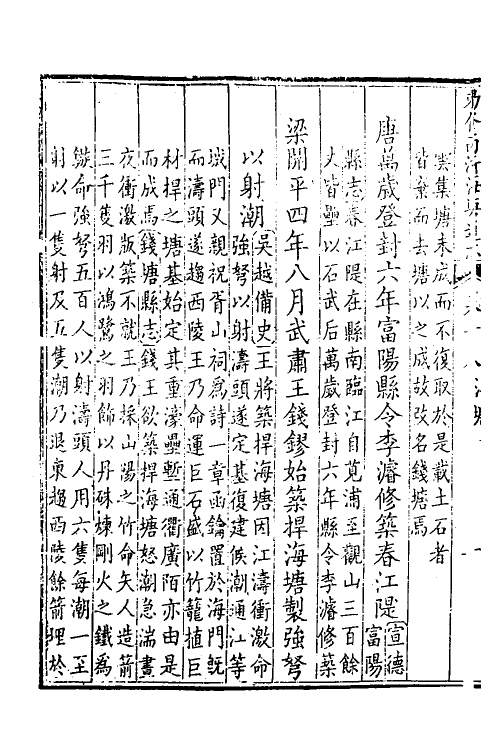 雲集塘未成而不復取於是載土石者
皆棄而去塘以之成故改名錢塘焉
唐萬歲登封六年富陽縣令李濬修築春江隄宣德富陽
縣志春江隄在縣南臨江自莧浦至觀山三百餘
丈皆壘以石武后萬歲登封六年縣令李濬修築
梁開平四年八月武肅王錢鏐始築捍海塘製強弩
以射潮吳越備史王將築捍海塘因江濤衝激命
強弩以射濤頭遂定基復建候潮通江等
城門又親祝胥山祠為詩一章函鑰置於海門既
而濤頭遂趨西陵王乃命運巨石盛以竹籠植巨
材捍之塘基始定其重濠壘塹通衢廣陌亦由是
而成焉錢塘縣志錢王欲築捍海塘怒潮急湍晝
夜衝激版築不就王乃採山陽之竹命矢人造箭
三千隻羽以鴻鷺之羽飾以丹硃煉剛火之鐵為
鏃命強弩五百人以射濤頭人用六隻每潮一至
射以一隻射及五隻潮乃退東趨西陵餘箭埋於